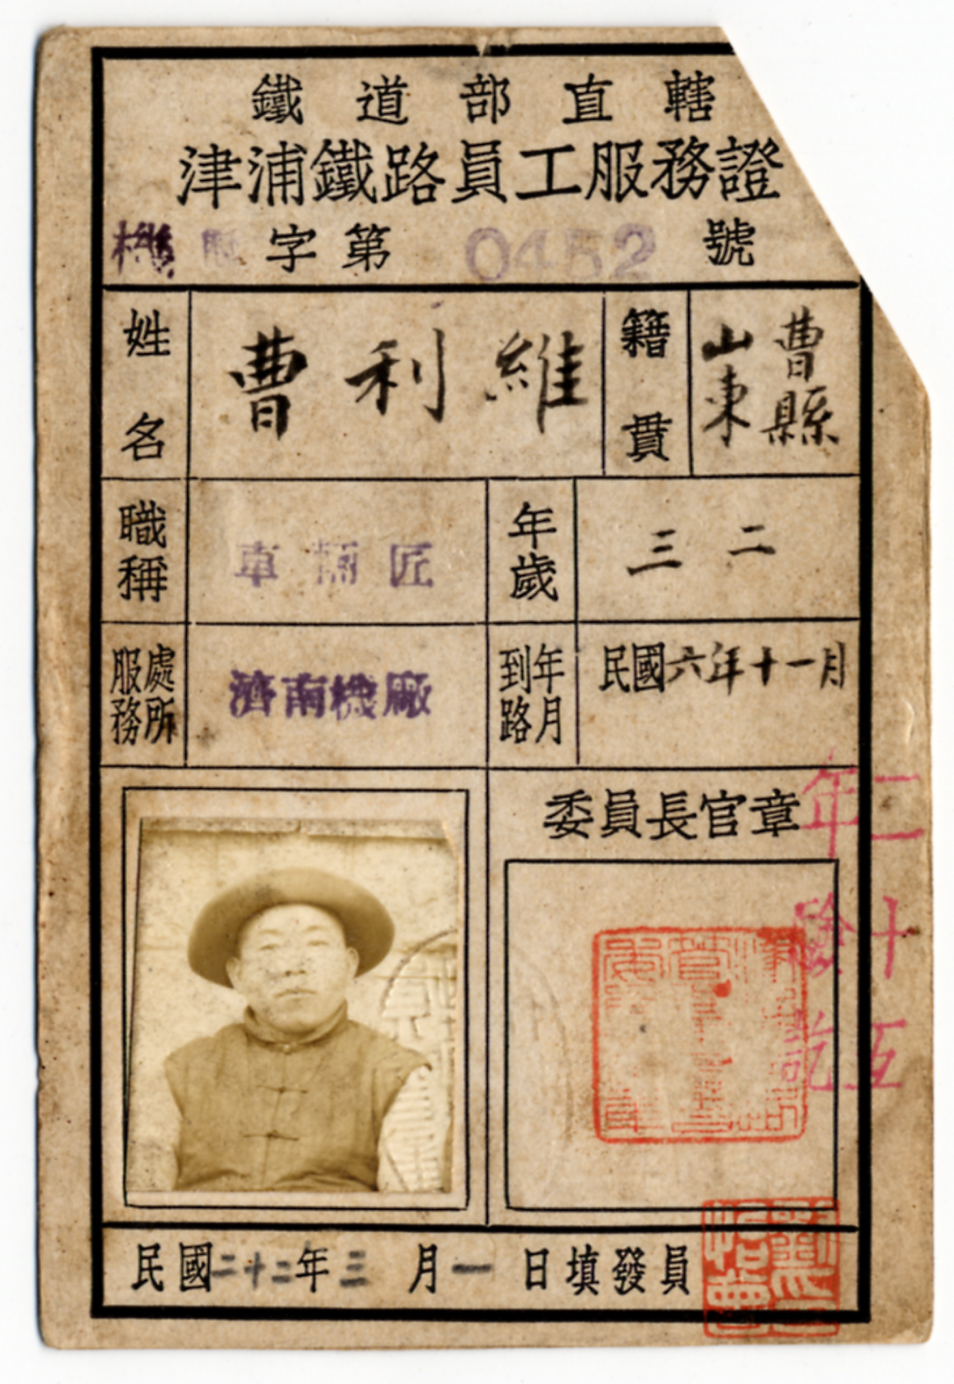 鐵道部直轄
津浦鐵路員工服務證
機 字第 0452 號
姓名 曹利維
籍貫 山東曹縣
職稱 車輛匠
年歲 三二
服務處所 濟南機廠
到路年月 民國六年十一月
委員長官章
二年
十
互訖
民國二十二年三月一日填發員